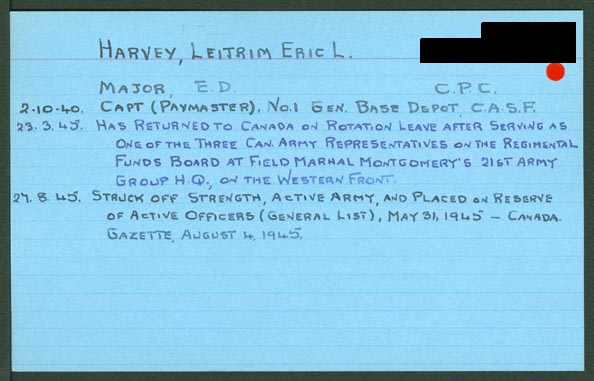 HARVEY, LEITRIM ERIC L.
MAJOR, E.D. C.P.C.
2-10-40. CAPT (PAYMASTER), NO.1 GEN. BASE DEPOT, C.A.S.F.
23.3.45. HAS RETURNED TO CANADA ON ROTATION LEAVE AFTER SERVING AS
ONE OF THE THREE CAN. ARMY REPRESENTATIVES ON THE REGIMENTAL
FUNDS BOARD AT FIELD MARHAL MONTGOMERY'S 21ST ARMY
GROUP H.Q., ON THE WESTERN FRONT.
27.8.45. STRUCK OFF STRENGTH, ACTIVE ARMY, AND PLACED ON RESERVE
OF ACTIVE OFFICERS (GENERAL LIST), MAY 31, 1945 – CANADA
GAZETTE, AUGUST 4, 1945.